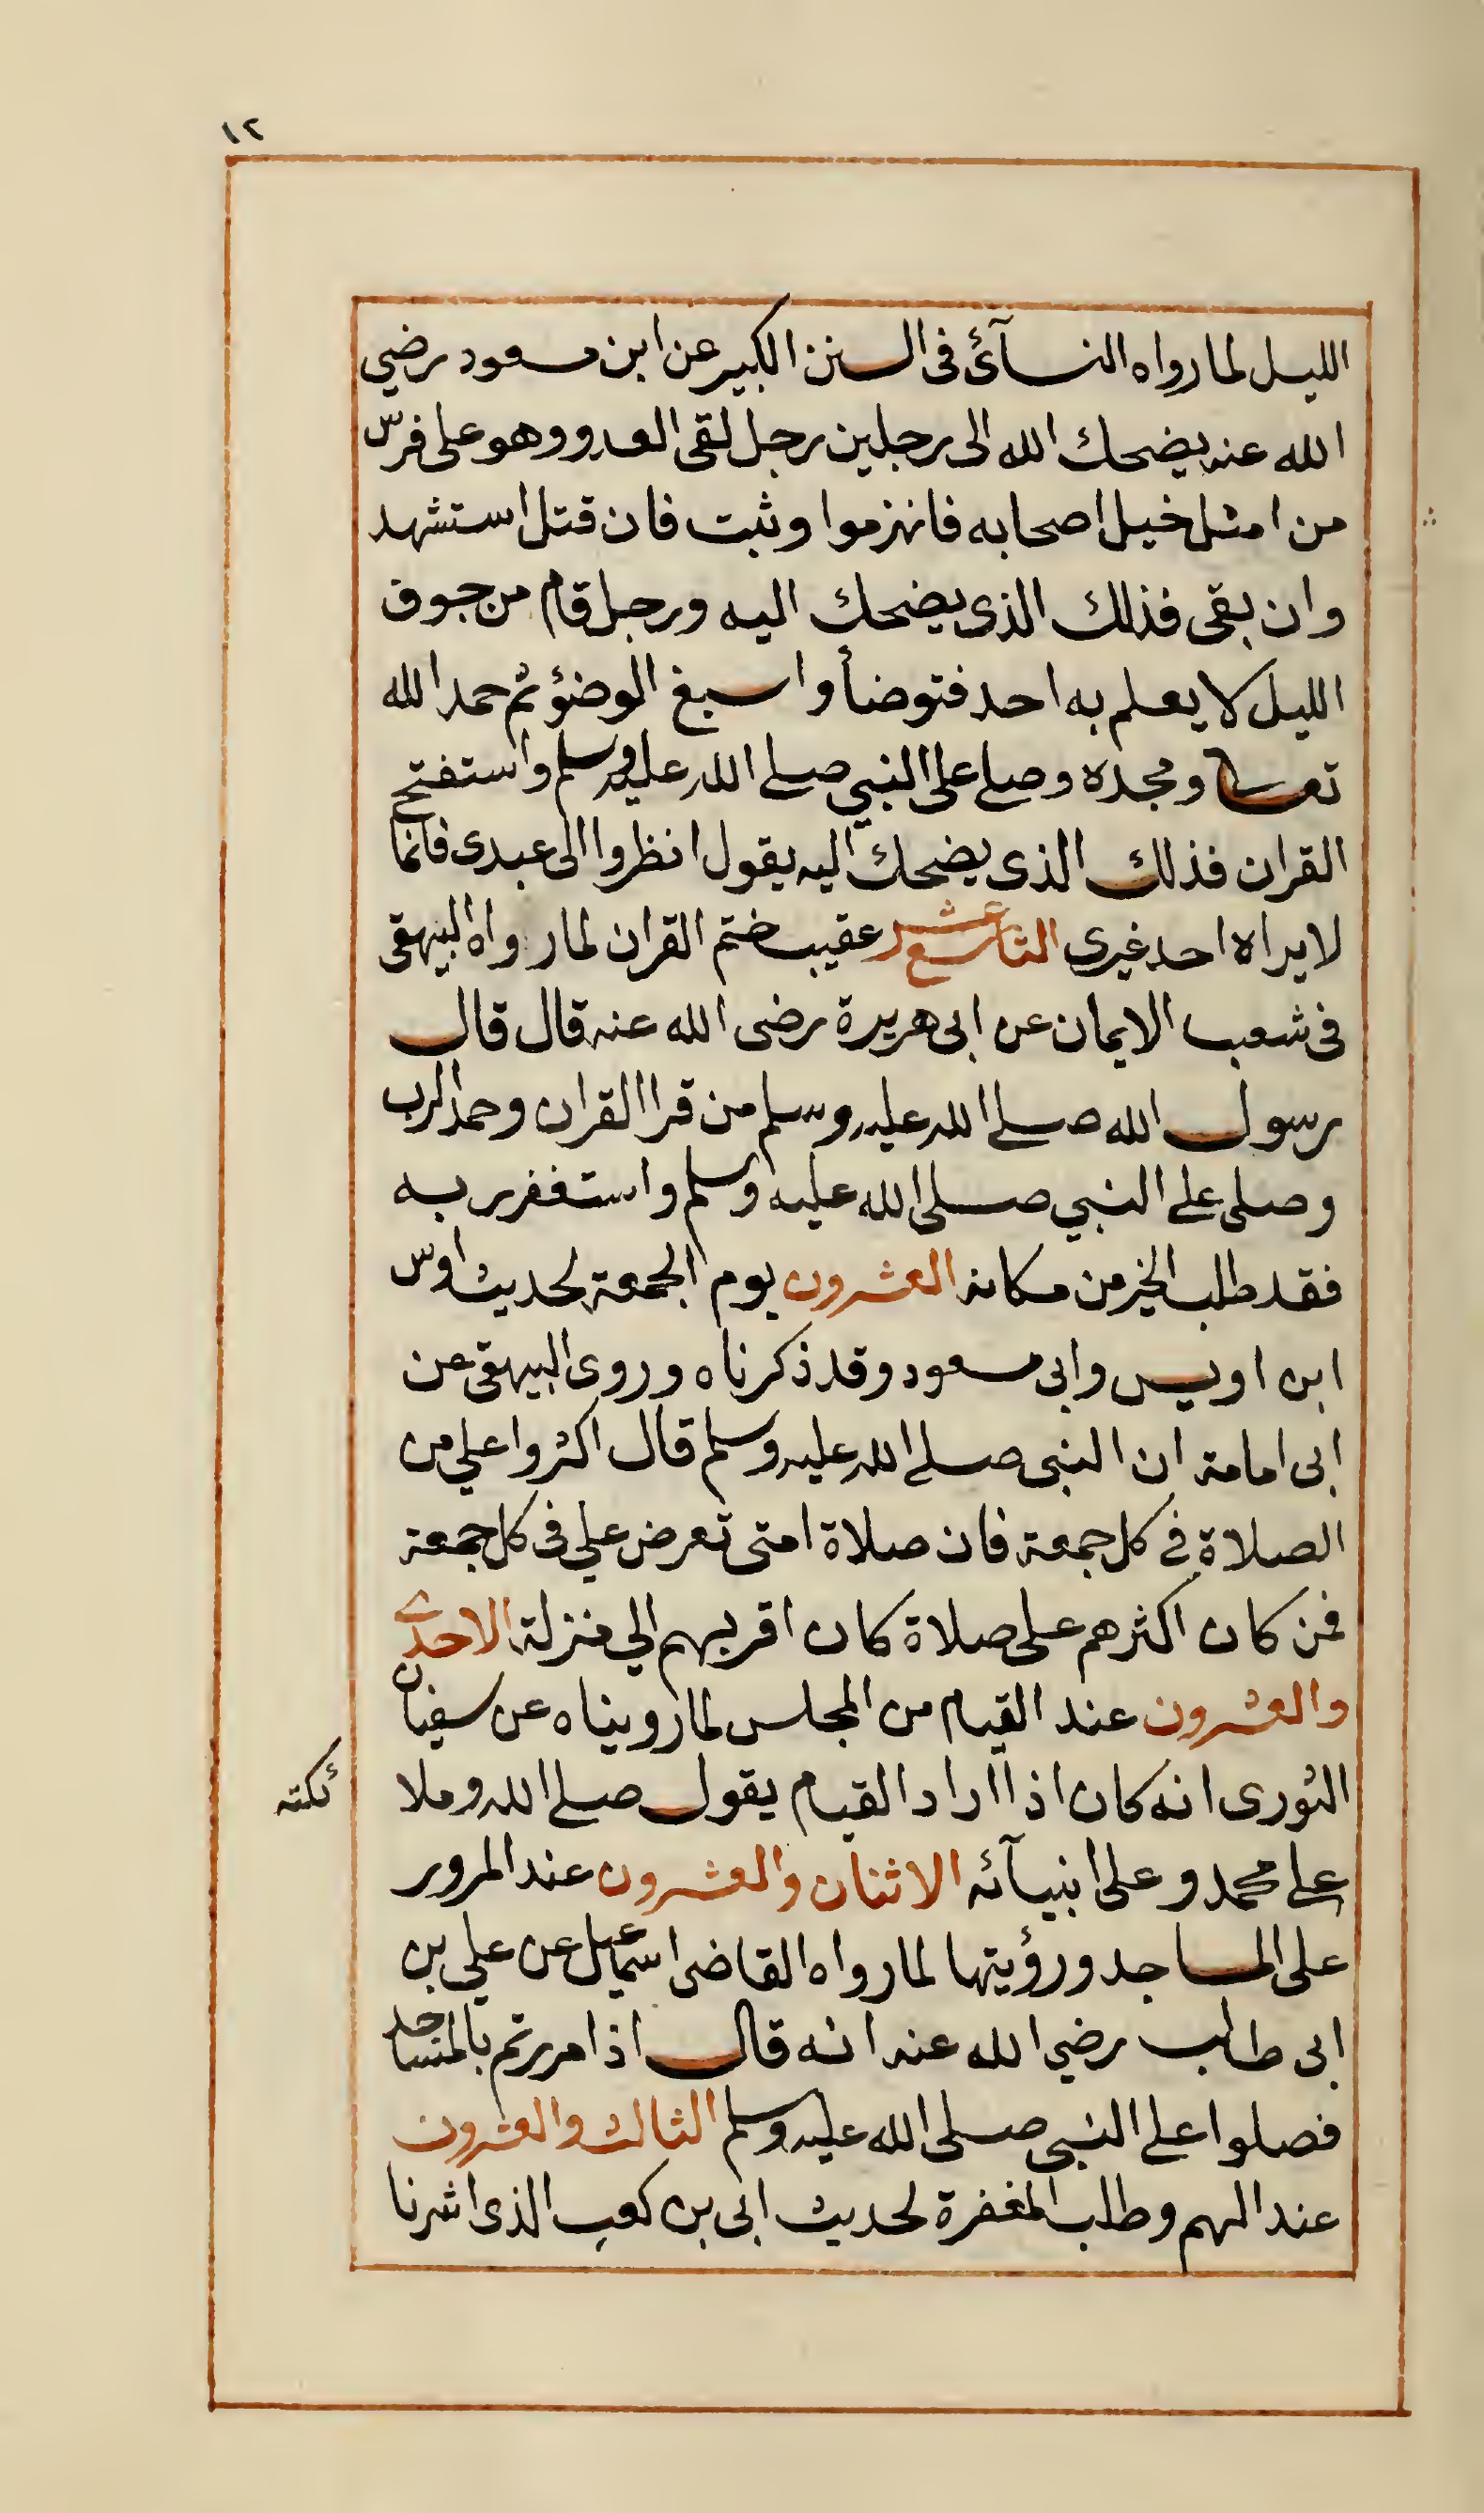 ١٢
الليل لما رواه النسآئ فى السنن الكبير عن ابن مسعود رضي
الله عنه يضحك الله الى رجلين رجل لقى العدو وهو على فرس
من امثل خيل اصحابه فانهزموا وثبت فان قتل استشهد
وان بقى فذلك الذى يضحك اليه ورجل قام من جوف
الليل لا يعلم به احد فتوضأ واسبغ الوضؤ ثم حمد الله
تعالى ومجده وصلى على النبي صلى الله عليه وسلم واستفتح
القران فذلك الذى يضحك اليه يقول انظروا الى عبدى قائما
لا يراه احد غيرى التاسع عشر عقيب ختم القران لما رواه البيهقى
فى شعب الايمان عن ابى هريرة رضى الله عنه قال قال
رسول الله صلى الله عليه وسلم من قرا القران وحمد الرب
وصلى على النبي صلى الله عليه وسلم واستغفر ربه
فقد طلب الخير من مكانه العشرون يوم الجمعة لحديث اوس
ابن اويس وابى مسعود وقد ذكرناه وروى البيهقى عن
ابى امامة ان النبى صلى الله عليه وسلم قال اكثروا علي من
الصلاة في كل جمعة فان صلاة امتى تعرض علي فى كل جمعة
فمن كان اكثرهم على صلاة كان اقربهم الي منزلة الاحدى
والعشرون عند القيام من المجلس لما رويناه عن سفيان
الثورى انه كان اذا اراد القيام يقول صلى الله وملا
ئكته
على محمد وعلى انبيآئه الاثنان والعشرون عند المرور
على المساجد ورؤيتها لما رواه القاضى اسمعيل عن علي بن
ابى طالب رضي الله عنه انه قال اذا مررتم بالمساجد
فصلوا على النبى صلى الله عليه وسلم الثالث والعشرون
عند الهم وطلب المغفرة لحديث ابى بن كعب الذى اشرنا